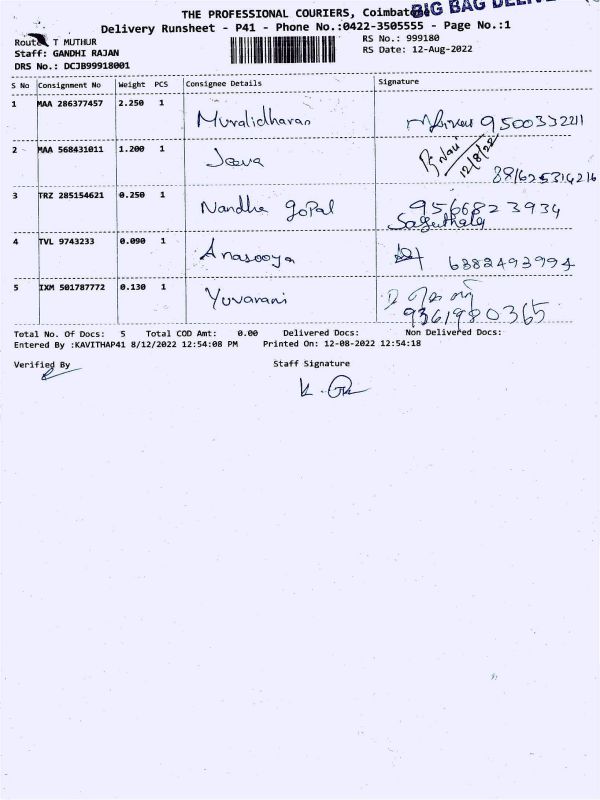 THE PROFESSIONAL COURIERS, Coimbatore
BIG BAG
Delivery Runsheet - P41 - Phone No.:0422-3505555 - Page No.:1
Route T MUTHUR
RS No.: 999180
Staff: GANDHI RAJAN
RS Date: 12-Aug-2022
DRS No.: DCJB99918001
S No Consignment No Weight PCS Consignee Details Signature
1 MAA 286377457 2.250 1 Muralidharan 9500332211
2 MAA 568431011 1.200 1 Jeeva 12/8/22
3 TRZ 285154621 0.250 1 Nandha goPal 9566823934
4 TVL 9743233 0.090 1 Anasooya 6382493994
5 IXM 501787772 0.130 1 Yuvarani 9361980365
Total No. Of Docs: 5 Total COD Amt: 0.00 Delivered Docs: Non Delivered Docs:
Entered By :KAVITHAP41 8/12/2022 12:54:08 PM Printed On: 12-08-2022 12:54:18
Verified By Staff Signature